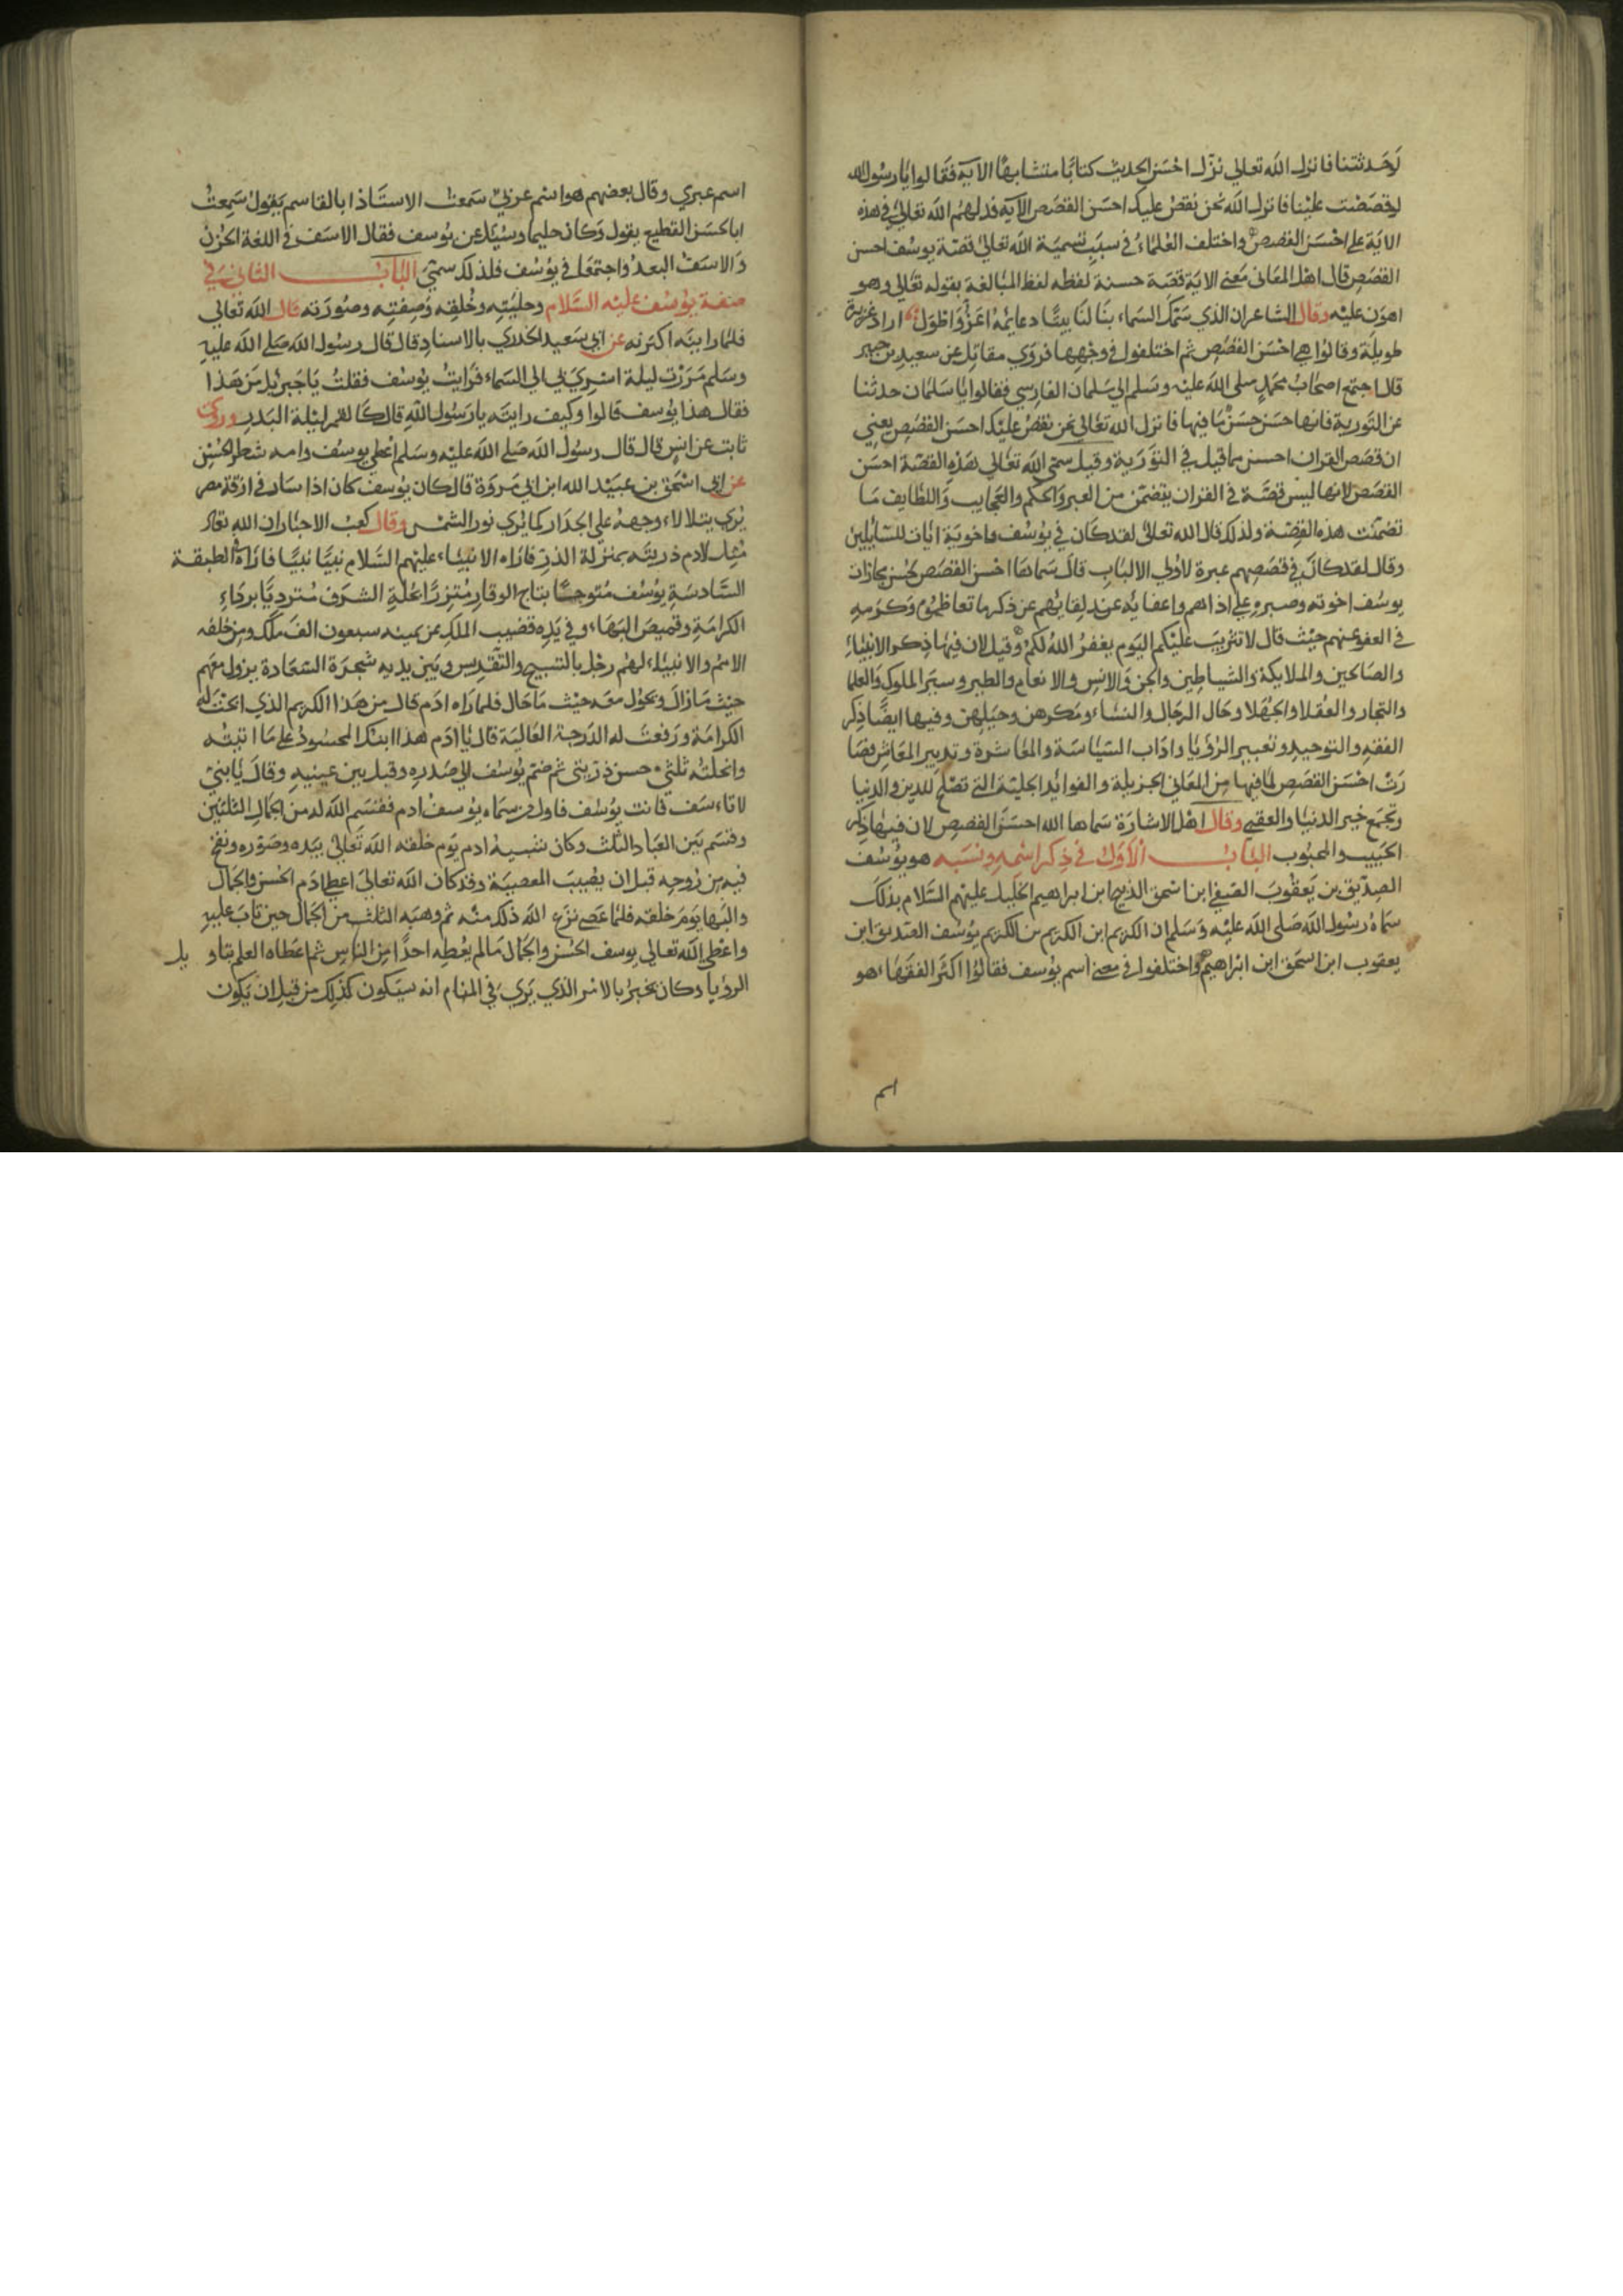 لوحدثتنا فانزل الله تعالى نزّل احسن الحديث كتابًا متشابهًا الآية فقالوا يا رسول الله
لو قصصت علينا فانزل الله نحن نقصّ عليك احسن القصص الآية فدلهم الله تعالى في هذه
الاية على احسن القصص واختلف العلماء في سبب تسمية الله تعالى قصة يوسف احسن
القصص قال اهل المعاني معنى الاية قصة حسنة لفظه لفظ المبالغة بقوله تعالى وهو
اهون عليه وقال الشاعر ان الذي سمك السماء بنا لنا بيتًا دعايمه اعزّ واطول اراد عزيزة
طويلة وقالوا هي احسن القصص ثم اختلفوا في وجهها فروي مقاتل عن سعيد بن جبير
قال اجتمع اصحاب محمد صلى الله عليه وسلم الى سلمان الفارسي فقالوا يا سلمان حدثنا
عن التورية فانها حسن حسن ما فيها فانزل الله تعالى نحن نقص عليك احسن القصص يعني
ان قصص القران احسن مما قيل في التورية وقيل سمى الله تعالى هذه القصة احسن
القصص لانها ليس قصّة في القران يتضمن من العبر والحكم والعجايب واللطايف ما
تضمنت هذه القصة ولذلك قال الله تعالى لقد كان في يوسف واخوته ايات للسايلين
وقال لقد كان في قصصهم عبرة لاولي الالباب قال سماها احسن القصص لحسن مجازات
يوسف اخوته وصبره على اذاهم واعفائه عند لقائهم عن ذكر ما تعاظموه وكرمه
في العفو عنهم حيث قال لا تثريب عليكم اليوم يغفر الله لكم وقيل لان فيها ذكر الانبياء
والصالحين والملايكة والشياطين والجن والانس والانعام والطير وسير الملوك والعلما
والتجار والعقلا والجهلا وحال الرجال والنساء ومكرهن وحيلهن وفيها ايضًا ذكر
الفقه والتوحيد وتعبير الرؤيا واداب السياسة والمعاشرة وتدبير المعاش فصا
رت احسن القصص لما فيها من المعاني الجزيلة والفوائد الجليلة التي تصلح للدين والدنيا
وتجمع خير الدنيا والعقبى وقال اهل الاشارة سماها الله احسن القصص لان فيها ذكر
الحبيب والمحبوب الباب الاول في ذكر اسمه ونسبه هو يوسف
الصدّيق بن يعقوب الصفي ابن اسحق الذبيح ابن ابراهيم الخليل عليهم السلام بذلك
سماه رسول الله صلى الله عليه وسلم ان الكريم ابن الكريم بن الكريم يوسف الصديق ابن
يعقوب ابن اسحق ابن ابراهيم واختلفوا في معنى اسم يوسف فقالوا اكثر الفقهاء هو
اسم
اسم عبري وقال بعضهم هو اسم عربي سمعت الاستاذ ابا القاسم يقول سمعت
ابا الحسن القطيع يقول وكان حليما وسئل عن يوسف فقال الاسف في اللغة الحزن
والاسف البعد واجتمعا في يوسف فلذلك سمّي الباب الثاني في
صفة يوسف عليه السلام وحليته وخلقه وصفته وصورته قال الله تعالى
فلما راينه اكبرنه عن ابي سعيد الخدري بالاسناد قال قال رسول الله صلى الله عليه
وسلم مررت ليلة اسري بي الى السماء فرايت يوسف فقلت يا جبريل من هذا
فقال هذا يوسف قالوا وكيف رايته يا رسول الله قال كالقمر ليلة البدر وروى
ثابت عن انس قال قال رسول الله صلى الله عليه وسلم اعطي يوسف وامه شطر الحسن
عن ابي اسحق بن عبيد الله ابن ابي مروة قال كان يوسف كان اذا سار في ازقة مصر
يرى يتلالاء وجهه على الجدار كما يرى نور الشمس وقال كعب الاحبار ان الله تعالى
مثل لادم ذريته بمنزلة الذر فاراه الانبياء عليهم السلام نبيًا نبيًا فاراه في الطبقة
السادسة يوسف متوجًا بتاج الوقار متزرًا بحلة الشرف مترديًا برداء
الكرامة وقميص البهاء وفي يده قضيب الملك عن يمينه سبعون الف ملك ومن خلفه
الامم والانبياء لهم زجل بالتسبيح والتقديس وبين يديه شجرة السعادة يزول معهم
حيث ما زال ويحول معه حيث ما حال فلما راه ادم قال من هذا الكريم الذي ابحت له
الكرامة ورفعت له الدرجة العالية قال يا ادم هذا ابنك المحسود على ما اتيته
وانحلته ثلثي حسن ذريتي ثم ضم يوسف الى صدره وقبل بين عينيه وقال يا بني
لا تاءسف فانت يوسف فاول من سماه يوسف ادم فقسم الله له من الجمال الثلثين
وقسم بين العباد الثلث وكان شبيه ادم يوم خلقه الله تعالى بيده وصوره ونفخ
فيه من روحه قبل ان يصيب المعصية وقد كان الله تعالى اعطى ادم الحسن والجمال
والبها يوم خلقه فلما عصى نزع الله ذلك منه ثم وهبه الثلث من الجمال حين تاب عليه
واعطى الله تعالى يوسف الحسن والجمال ما لم يعطه احدًا من الناس ثم اعطاه العلم بتاو يل
الرؤيا وكان يخبر بالامر الذي يرى في المنام انه سيكون كذلك من قبل ان يكون